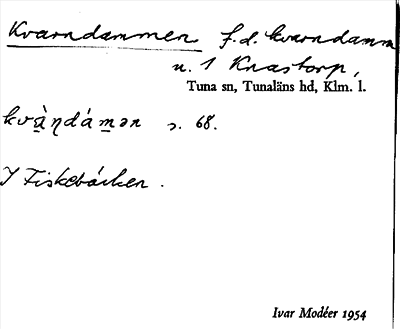 Kvarndammen f.d. kvarndamm
u. 1 Knastorp,
Tuna sn, Tunaläns hd, Klm. l.
kvà̱ɳdám̱ən s. 68.
I Fiskebäcken.
Ivar Modéer 1954